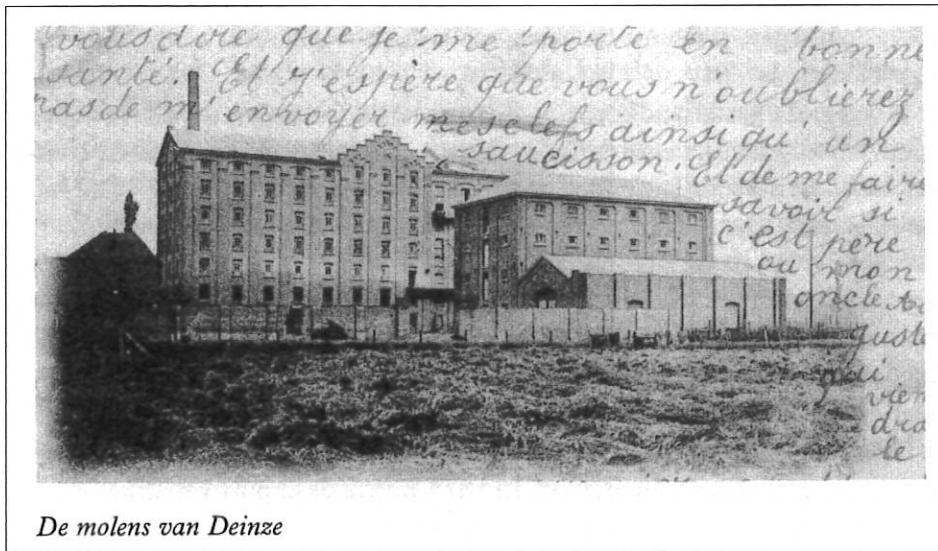 vous dire que je me porte en bonne
santé. Et j'espère que vous n'oublierez
pas de m'envoyer mes clefs ainsi qu'un
saucisson. Et de me faire
savoir si
c'est père
ou mon
oncle Au
guste
qui
vien
dra
le
De molens van Deinze